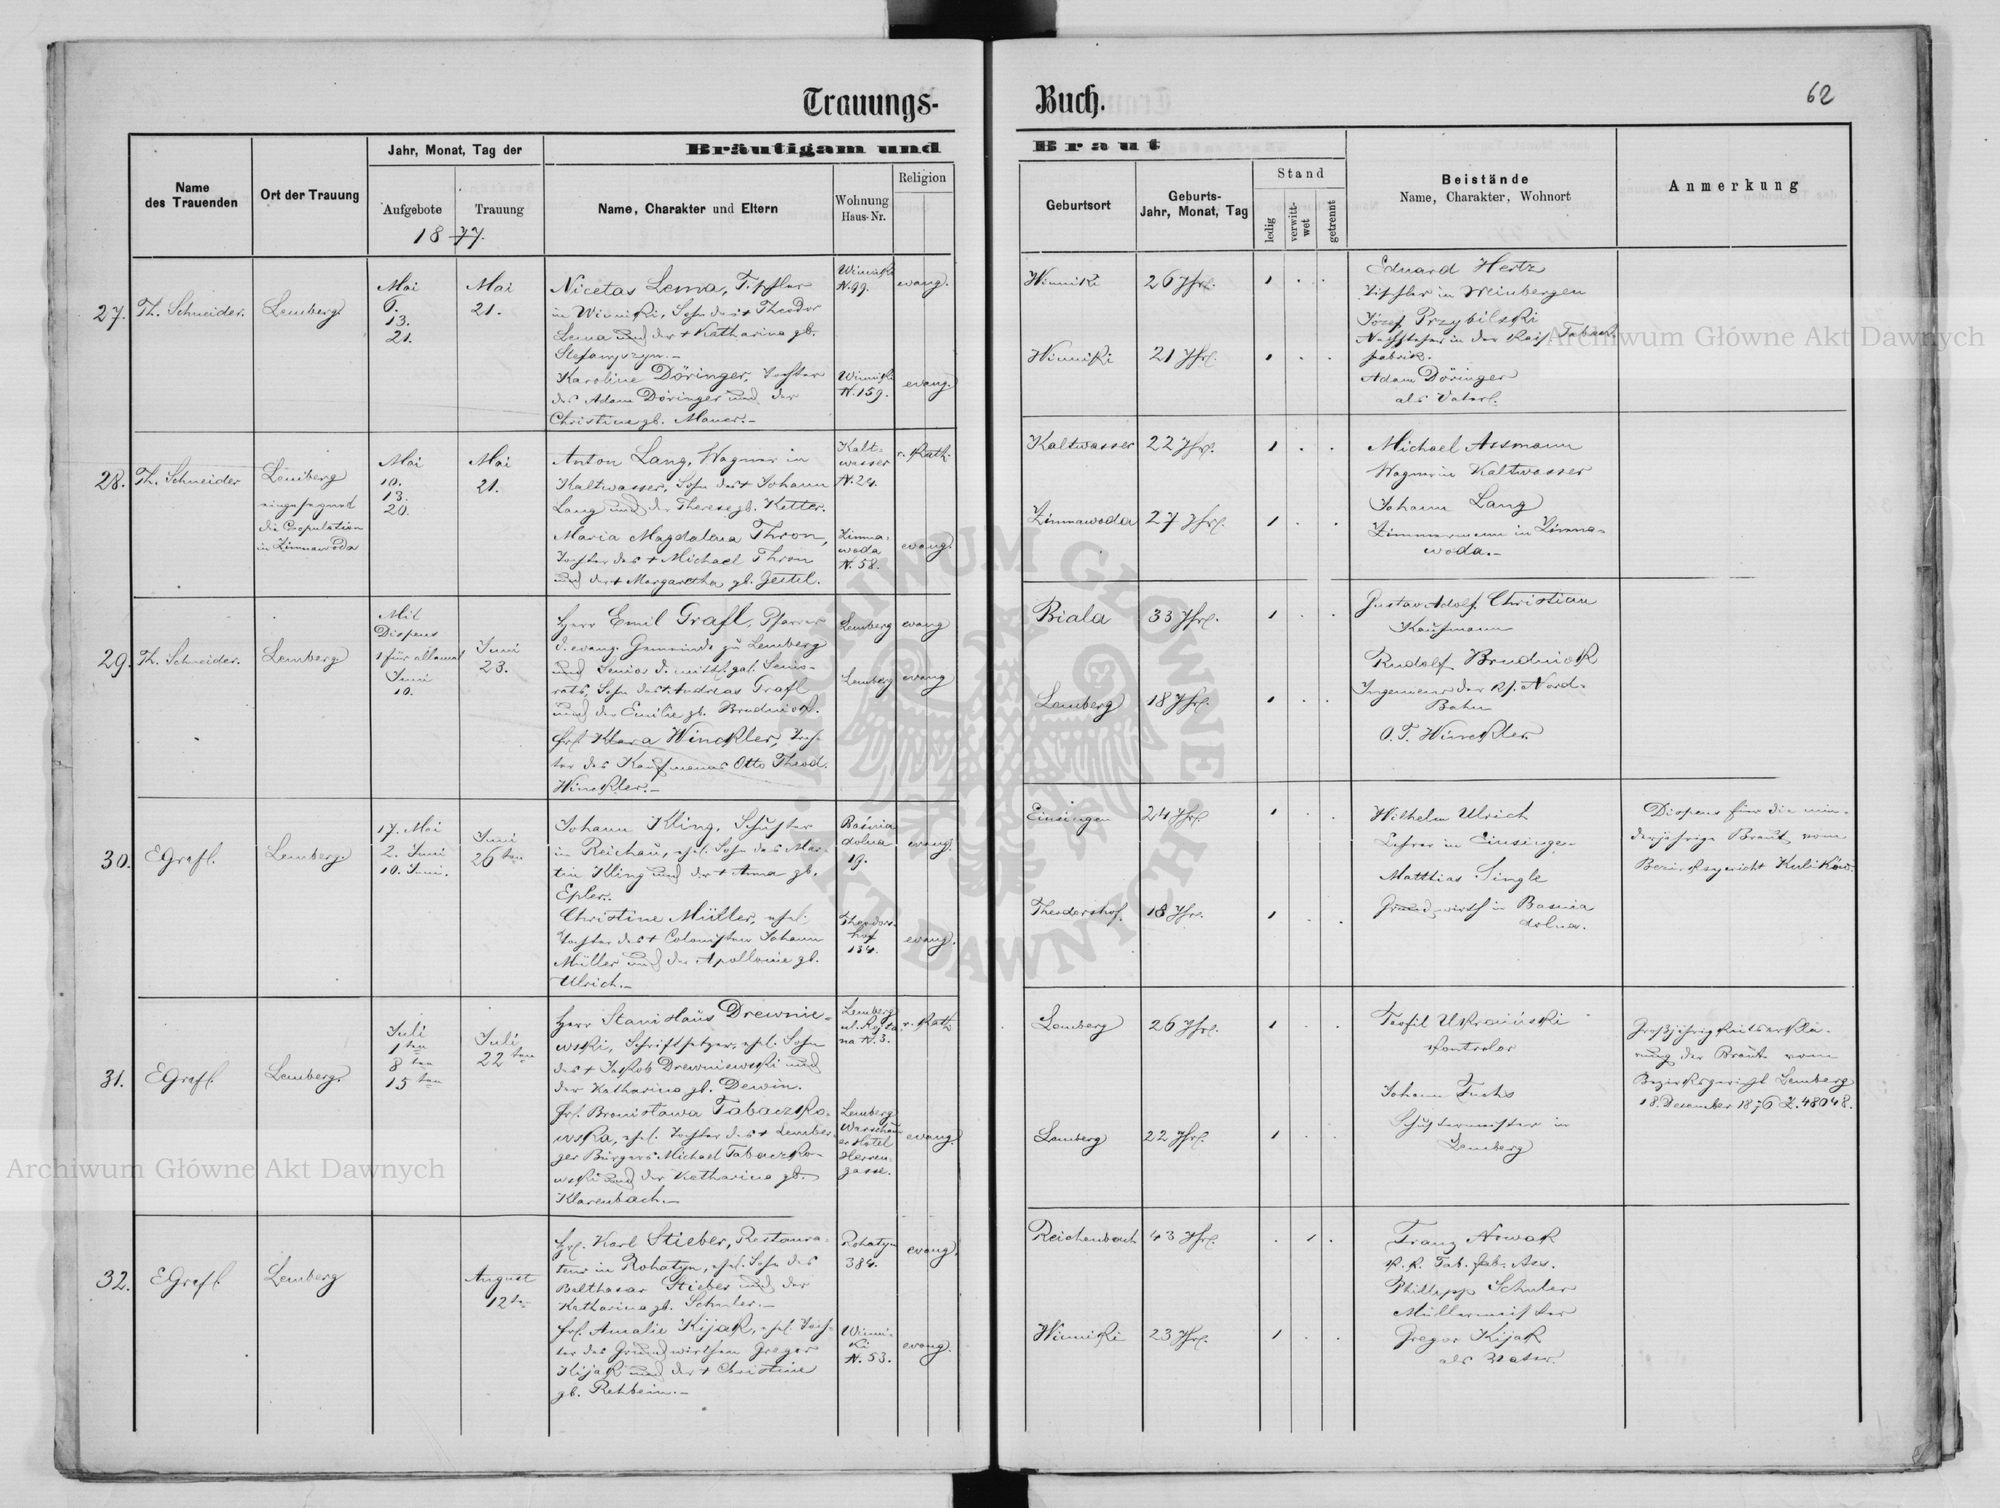 Trauungs-
Buch.
62
Name
des Trauenden
Ort der Trauung
Jahr, Monat, Tag der
Aufgebote
Trauung
1877.
Bräutigam und
Name, Charakter und Eltern
Wohnung
Haus-Nr.
Religion
Braut
Geburtsort
Geburts-
Jahr, Monat, Tag
Stand
ledig
verwitt-
wet
getrennt
Beistände
Name, Charakter, Wohnort
Anmerkung
27.
Th. Schneider.
Lemberg
Mai
6.
13.
21.
Mai
21.
Nicetas Lema, Tischler
in Winniki, Sohn des + Theodor
Lema und der + Katharina gb.
Stefanyszyn.-
Karoline Döringer, Tochter
des Adam Döringer und der
Christine gb. Mauer.-
Winniki
N. 99.
Winniki
N. 159.
evang.
evang.
Winniki
26 Jhr.
Winniki
21 Jhr.
Eduard Hertz
Tischler in Weinbergen
Józef Przybilski
in der Kais. Tabak-
fabrik.
Adam Döringer
als Vater.
28.
Th. Schneider
Lemberg
eingesegnet
die Copulation
in Zimnawoda
Mai
10.
13.
20.
Mai
21.
Anton Lang, Wagner in
Kaltwasser, Sohn des + Johann
Lang und der Therese gb. Ketter.
Maria Magdalena Thron,
Tochter des + Michael Thron
und der + Margaretha gb.
Kalt-
wasser
N. 24.
Zimna-
woda
N. 58.
r. Kath.
evang.
Kaltwasser
22 Jhr.
Zimnawoda
27 Jhr.
Michael Assmann
Wagner in Kaltwasser
Johann Lang
Zimmermann in Zimna-
woda.-
29.
Th. Schneider.
Lemberg
Mit
Dispens
1 für allemal
Juni
10.
Juni
23.
Herr Emil Grafl, Pfarrer
d. evang. Gemeinde zu Lemberg
und Senior d. mittl. gal. Senio-
rats, Sohn des + Andreas Grafl
und der Emilie gb. Brudniok.
Frl. Klara Winckler, Toch-
ter des Kaufmanns Otto Theod.
Winckler.-
Lemberg
Lemberg
evang
evang
Biala
33 Jhr.
Lemberg
18 Jhr.
Gustav Adolf Christian
Kaufmann
Rudolf Brudniok
Ingenieur der Nord-
Bahn
O. T. Winckler.
30.
EGrafl.
Lemberg.
17. Mai
2. Juni
10. Juni.
Juni
26 ten
Johann Kling, Schuster
in Reichau, ehel. Sohn des Mar-
tin Kling und der + Anna gb.
Epler.
Christine Müller, ehel.
Tochter des + Colonisten Johann
Müller und der Apollonie gb.
Ulrich.-
Basnia
dolna
19.
Theodors-
hof
134.
evang.
evang.
Einsingen
24 Jhr.
Theodershof
18 Jhr.
Wilhelm Ulrich
Lehrer in Einsingen
Matthias Single
Grundwirth in Basnia
dolna.
Dispens für die min-
derjährige Braut vom
Bezirksgericht Kulików.
31.
EGrafl.
Lemberg.
Juli
1 ten
8 ten
15 ten
Juli
22 ten
Herr Stanislaus Drewnie-
wski, Schriftsetzer, ehel. Sohn
des + Jakob Drewniewski und
der Katharina gb. Dewin.
Frl. Bronisława Tabaczko-
wska, ehel. Tochter des + Lember-
ger Bürgers Michael Tabaczko-
wski und der Katharina gb.
Klarenbach.-
Lemberg
ul. Rejta
na N. 3.
Lemberg
Warschau
er Hotel
Herren-
gasse.
r. Kath
evang.
Lemberg
26 Jhr.
Lemberg
22 Jhr.
Teofil Ukraiński
Kontrolor
Johann Fuchs
Schustermeister in
Lemberg
Großjährigkeitserklä-
rung der Braut vom
Bezirksgericht Lemberg
18. Dezember 1876 Z. 48048.
32.
EGrafl
Lemberg
August
12 ten
Hr. Karl Stieber, Restaura-
teur in Rohatyn, ehel. Sohn des
Balthasar Stieber und der
Katharina gb. Schuler.-
Frl. Amalie Kijak, ehel. Toch-
ter des Grundwirthen Gregor
Kijak und der + Christine
gb. Rehbein.-
Rohatyn
384.
Winni-
ki
N. 53.
evang.
evang.
Reichenbach
43 Jhr.
Winniki
23 Jhr.
Franz Nowak
k. k. Tab. fab. Ass.
Phillipp Schuler
Müllermeister
Gregor Kijak
als Vater.
Archiwum Główne Akt Dawnych
Archiwum Główne Akt Dawnych
ARCHIWUM GŁÓWNE AKT DAWNYCH